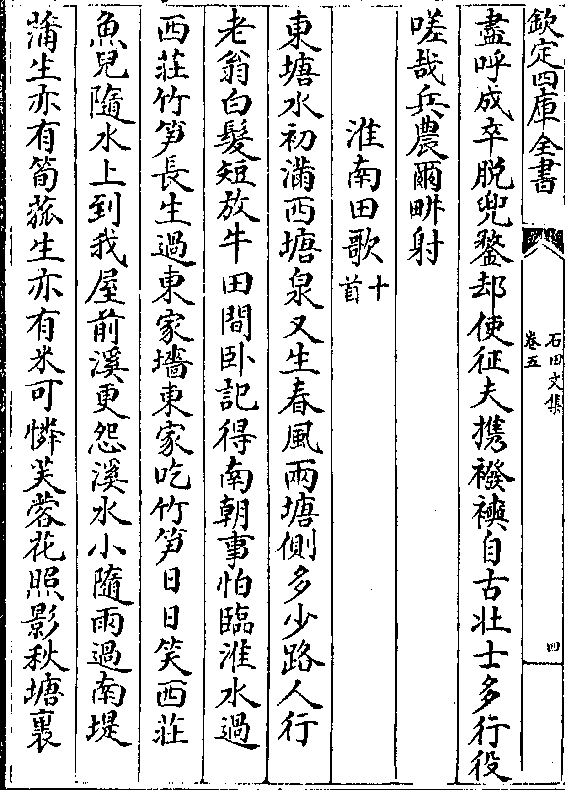 欽定四庫全書
石田文集
卷五
四
盡呼成卒脱兜鍪却使征夫携襏襫自古壯士多行役
嗟哉兵農爾畊射
淮南田歌十首
東塘水初滿西塘泉又生春風兩塘側多少路人行
老翁白髮短放牛田間卧記得南朝事怕臨淮水過
西莊竹笋長生過東家墻東家吃竹笋日日笑西莊
魚兒隨水上到我屋前溪更怨溪水小隨雨過南堤
蒲生亦有筍菰生亦有米可憐芙蓉花照影秋塘裏